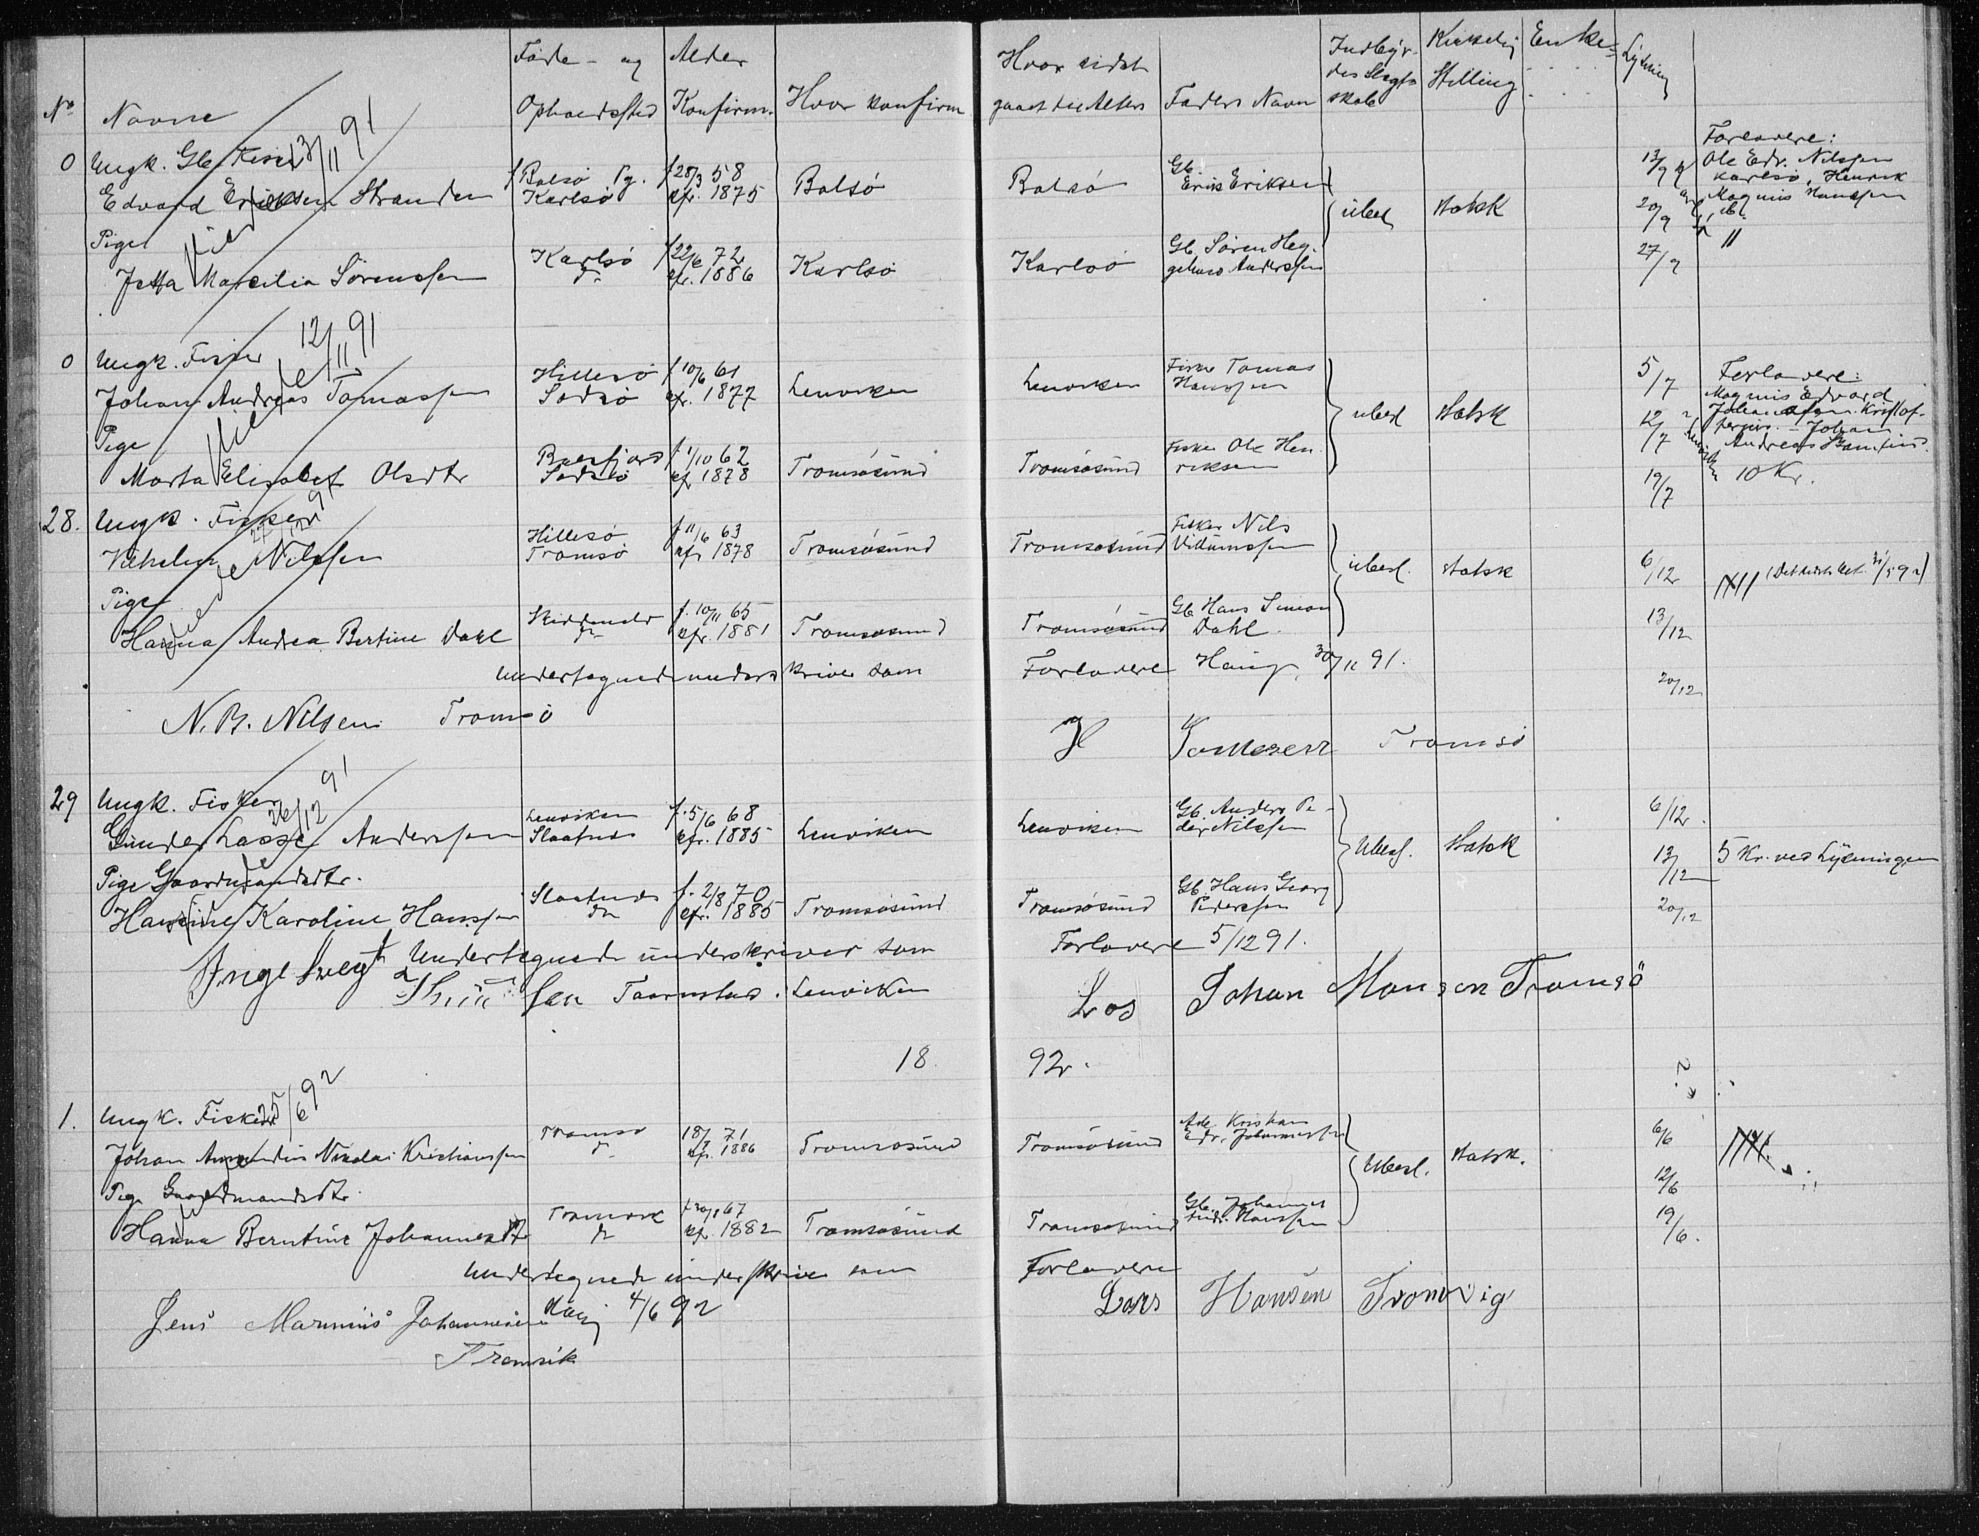 No Navne Føde- og Opholdssted Alder Konfirm. Hvor konfirm Hvor sidst gaaet til Alters Faders Navn Indbyrdes Slægtskab Kirkelig Stilling Enke- Lysning
0 Ungk. Gb. Fisker 23/11 91
Edvard Eriksen Stranden Balsø Pg. Karlsø f 28/3 58 kfr. 1875 Balsø Balsø Gb. Erik Eriksen ubesl Statsk 13/9 20/9 27/9
Forlovere:
Ole Edv. Nilssen
Karlsø, Henrik
Magnus Hanssen
Pige
Jetta Marcilia Sørenssen Karlsø do f 22/6 72 kfr. 1886 Karlsø Karlsø Gb. Søren Hegelund Anderssen
0 Ungk. Fisker 12/11 91
Viede
Johan Andreas Tomassen Hillesø f 10/6 61 kfr. 1877 Lenviken Lenviken Fisker Tomas Hanssen ubesl Statsk 5/7 12/7 19/7
Forlovere:
Magnus Edvard
Johan
Andreas
10 Kr.
Pige
Marta Elisabet Olsdtr f 1/10 62 kfr 1878 Tromsøsund Tromsøsund Fisker Ole Henriksen
28. Ungk. Fisker
Vilhelm Nilssen Hillesø Tromsø f 11/6 63 kfr 1878 Tromsøsund Tromsøsund Fisker Nils Villumssen ubesl. Statsk 6/12 13/12 20/12
Pige
Hanna Andrea Bertine Dahl do f. 10/11 65 kfr. 1881 Tromsøsund Tromsøsund Gb. Hans Simon Dahl.
Undertegnede underskriver som Forlovere Haug, 30/11 91.
N. B. Nilsen Tromsø H Tromsø
29 Ungk. Fisker 26/12 91
Gunder Lasse Anderssen Lenviken Slaatnes f. 5/6 68 kfr. 1885 Lenviken Lenviken Gb. Anders Peder Nilssen Ubesl. Statsk 6/12. 13/12 20/12 5 Kr. ved Lysningen
Pige Gaardmandsdtr.
Hansine Karoline Hanssen Slaatnes do f. 2/8 70 kfr. 1885 Tromsøsund Tromsøsund Gb. Hans Georg Pederssen
Undertegnede underskriver som Forlovere 5/12 91.
Lenviken Los Johan Tromsö
18 92.
1. Ungk. Fisker 25/6 92
Johan Nikolai Kristianssen Tromsø do 18/7 71 kfr. 1886 Tromsøsund Tromsøsund Kristian Edv. Johannessen Ubesl. Statsk. 6/6 12/6 19/6.
Pige Gaardmandsdtr.
Hanna Berntine Johannesdtr do kfr. 1882 Tromsøsund Tromsøsund Gb. Johannes Andr. Hanssen
Undertegnede underskriver som Forlovere
Jens Marinius Johannesen Haug 4/6 92 Lars Hansen Tromvig
Tromvik